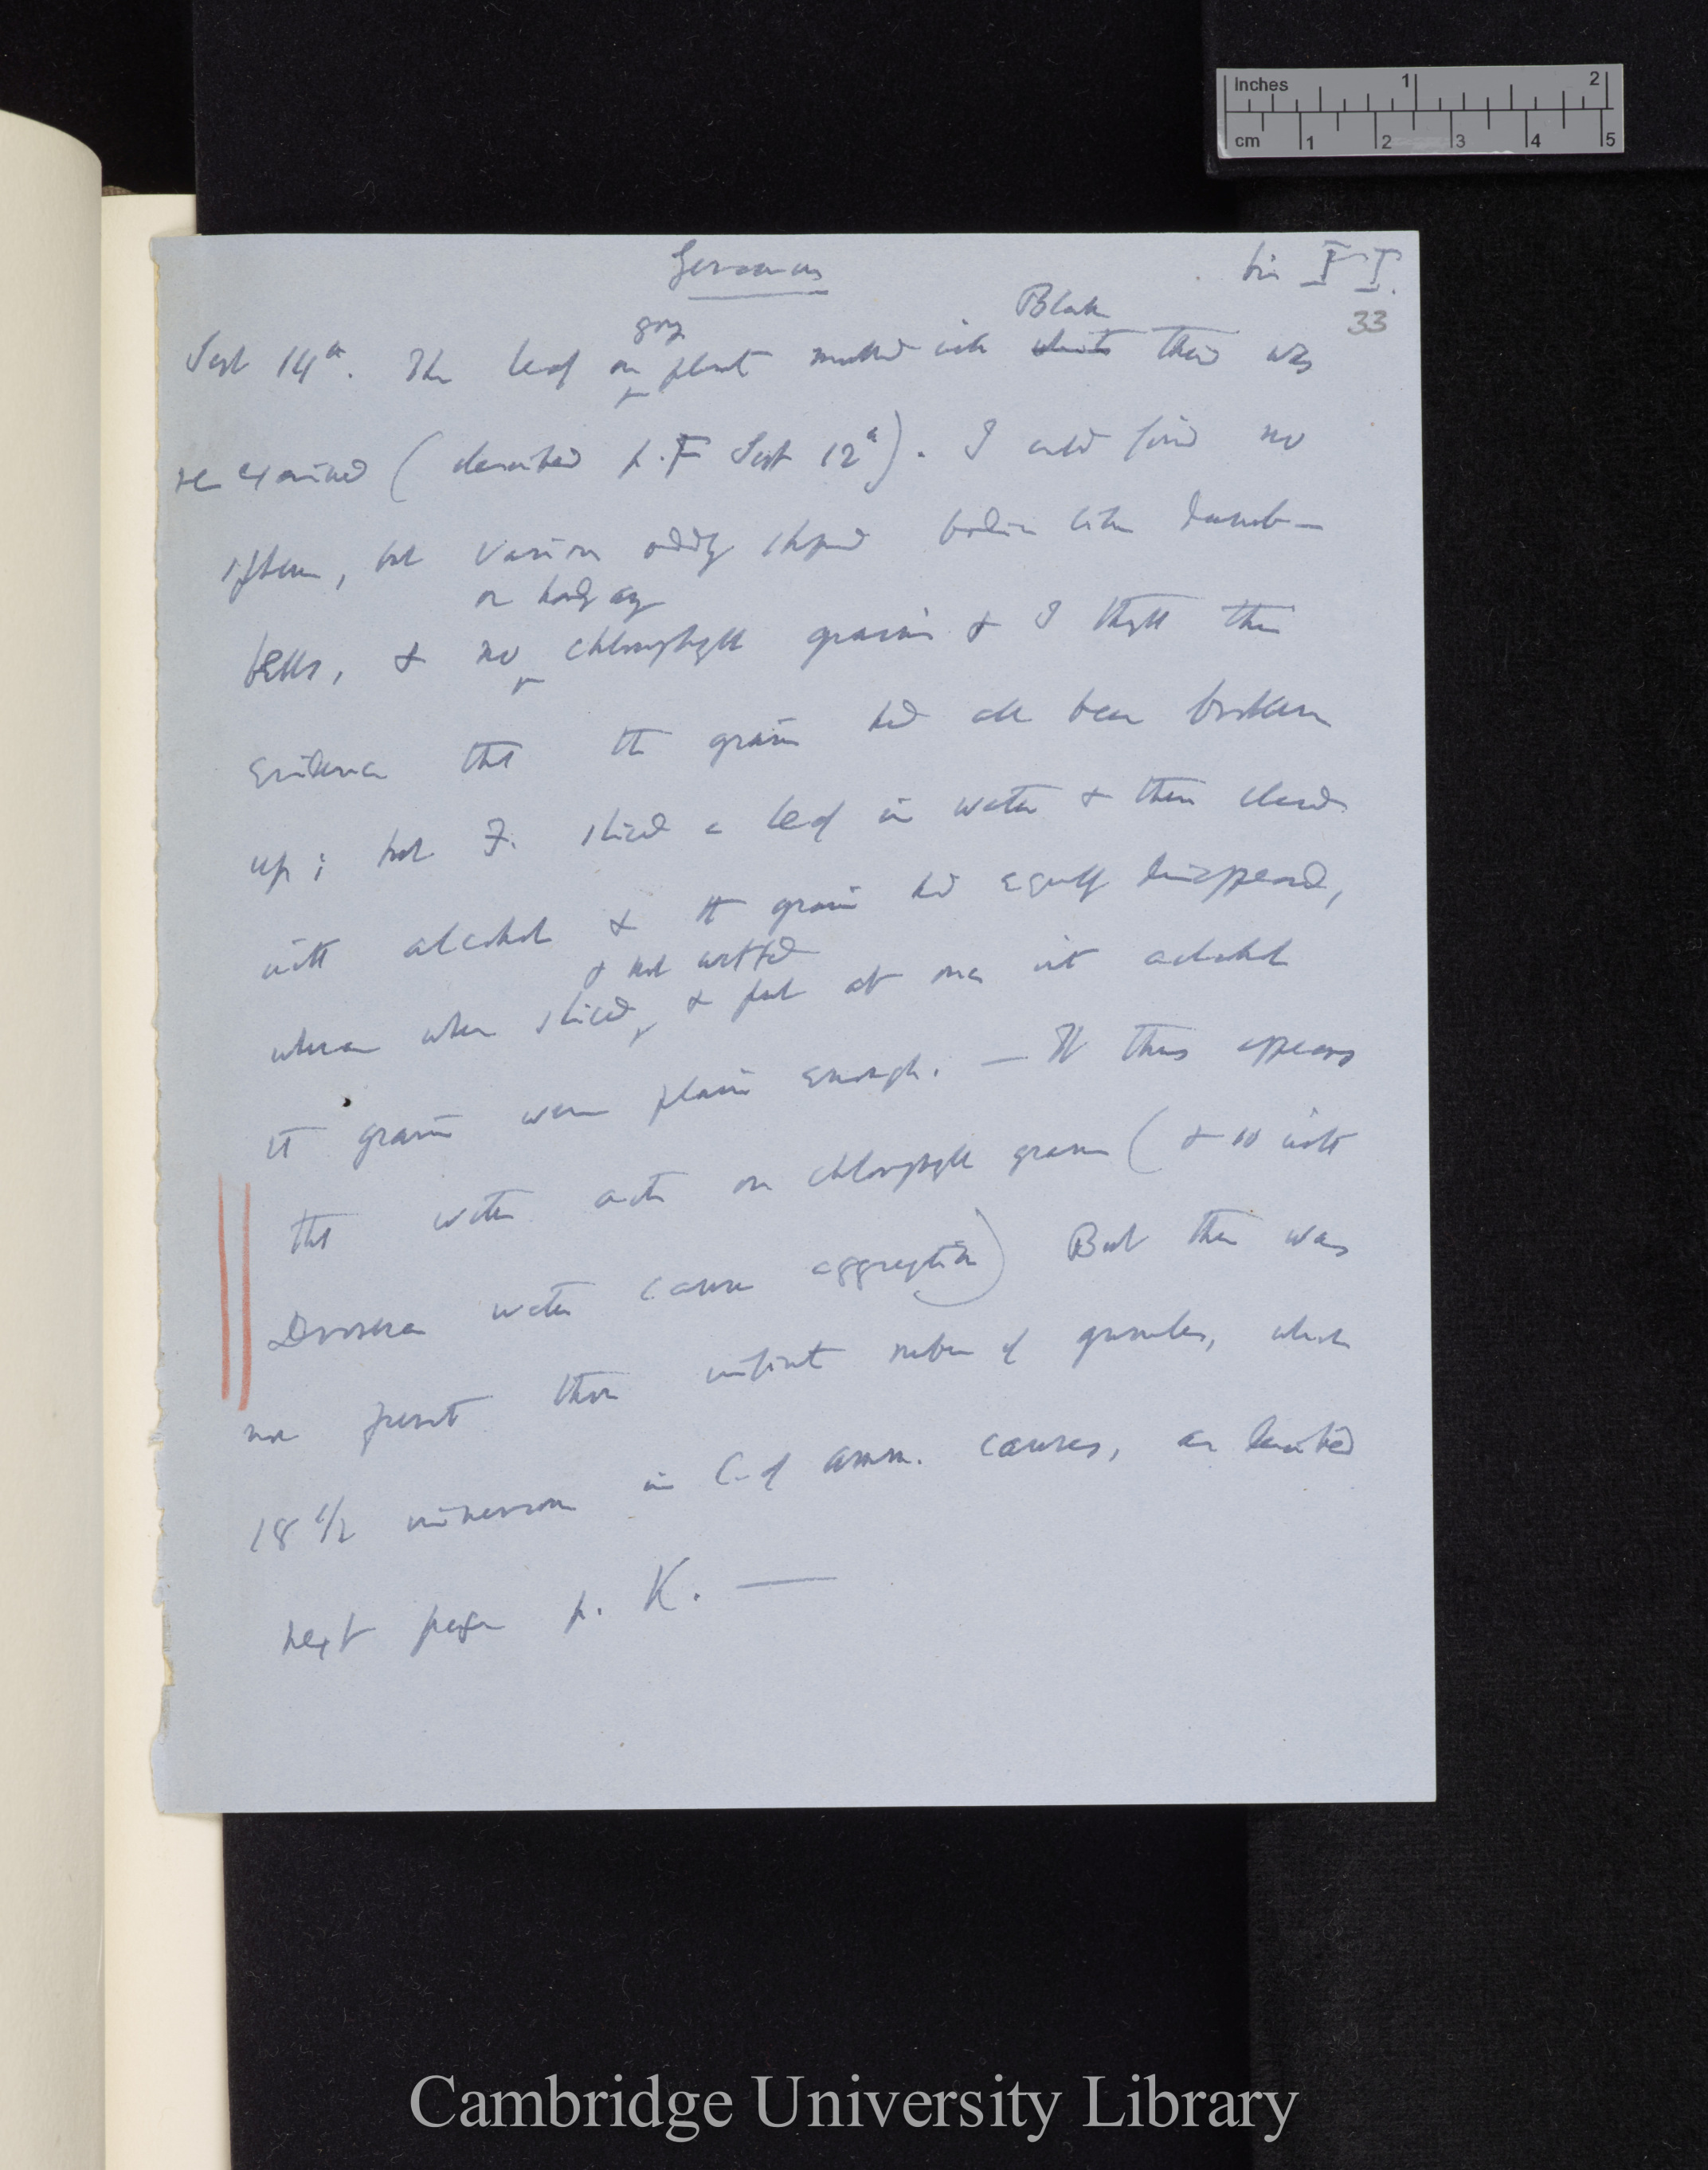 Inches 1 2
cm 1 2 3 4 5
bis I I.
33
Sept 14th. The leaf on plant marked with Black white thread was
re examined (described p. F Sept 12th). I could find no
spheres, but various oddly shaped bodies like dumb-
bells, & no or hardly any chlorophyll grains & I thought this
evidence that the grains had all been broken
up; but F. sliced a leaf in water & then cleared
with alcohol & the grains had equally disappeared,
whereas when sliced & not wetted & put at once into alcohol
the grains were plain enough. — It thus appears
that water acts on chlorophyll grains (& so with
Drosera water causes aggregation) But there was
not present that infinite number of granules, which
18 1/2 immersion in C. of amm. causes, as described
next page p. K. —
Cambridge University Library